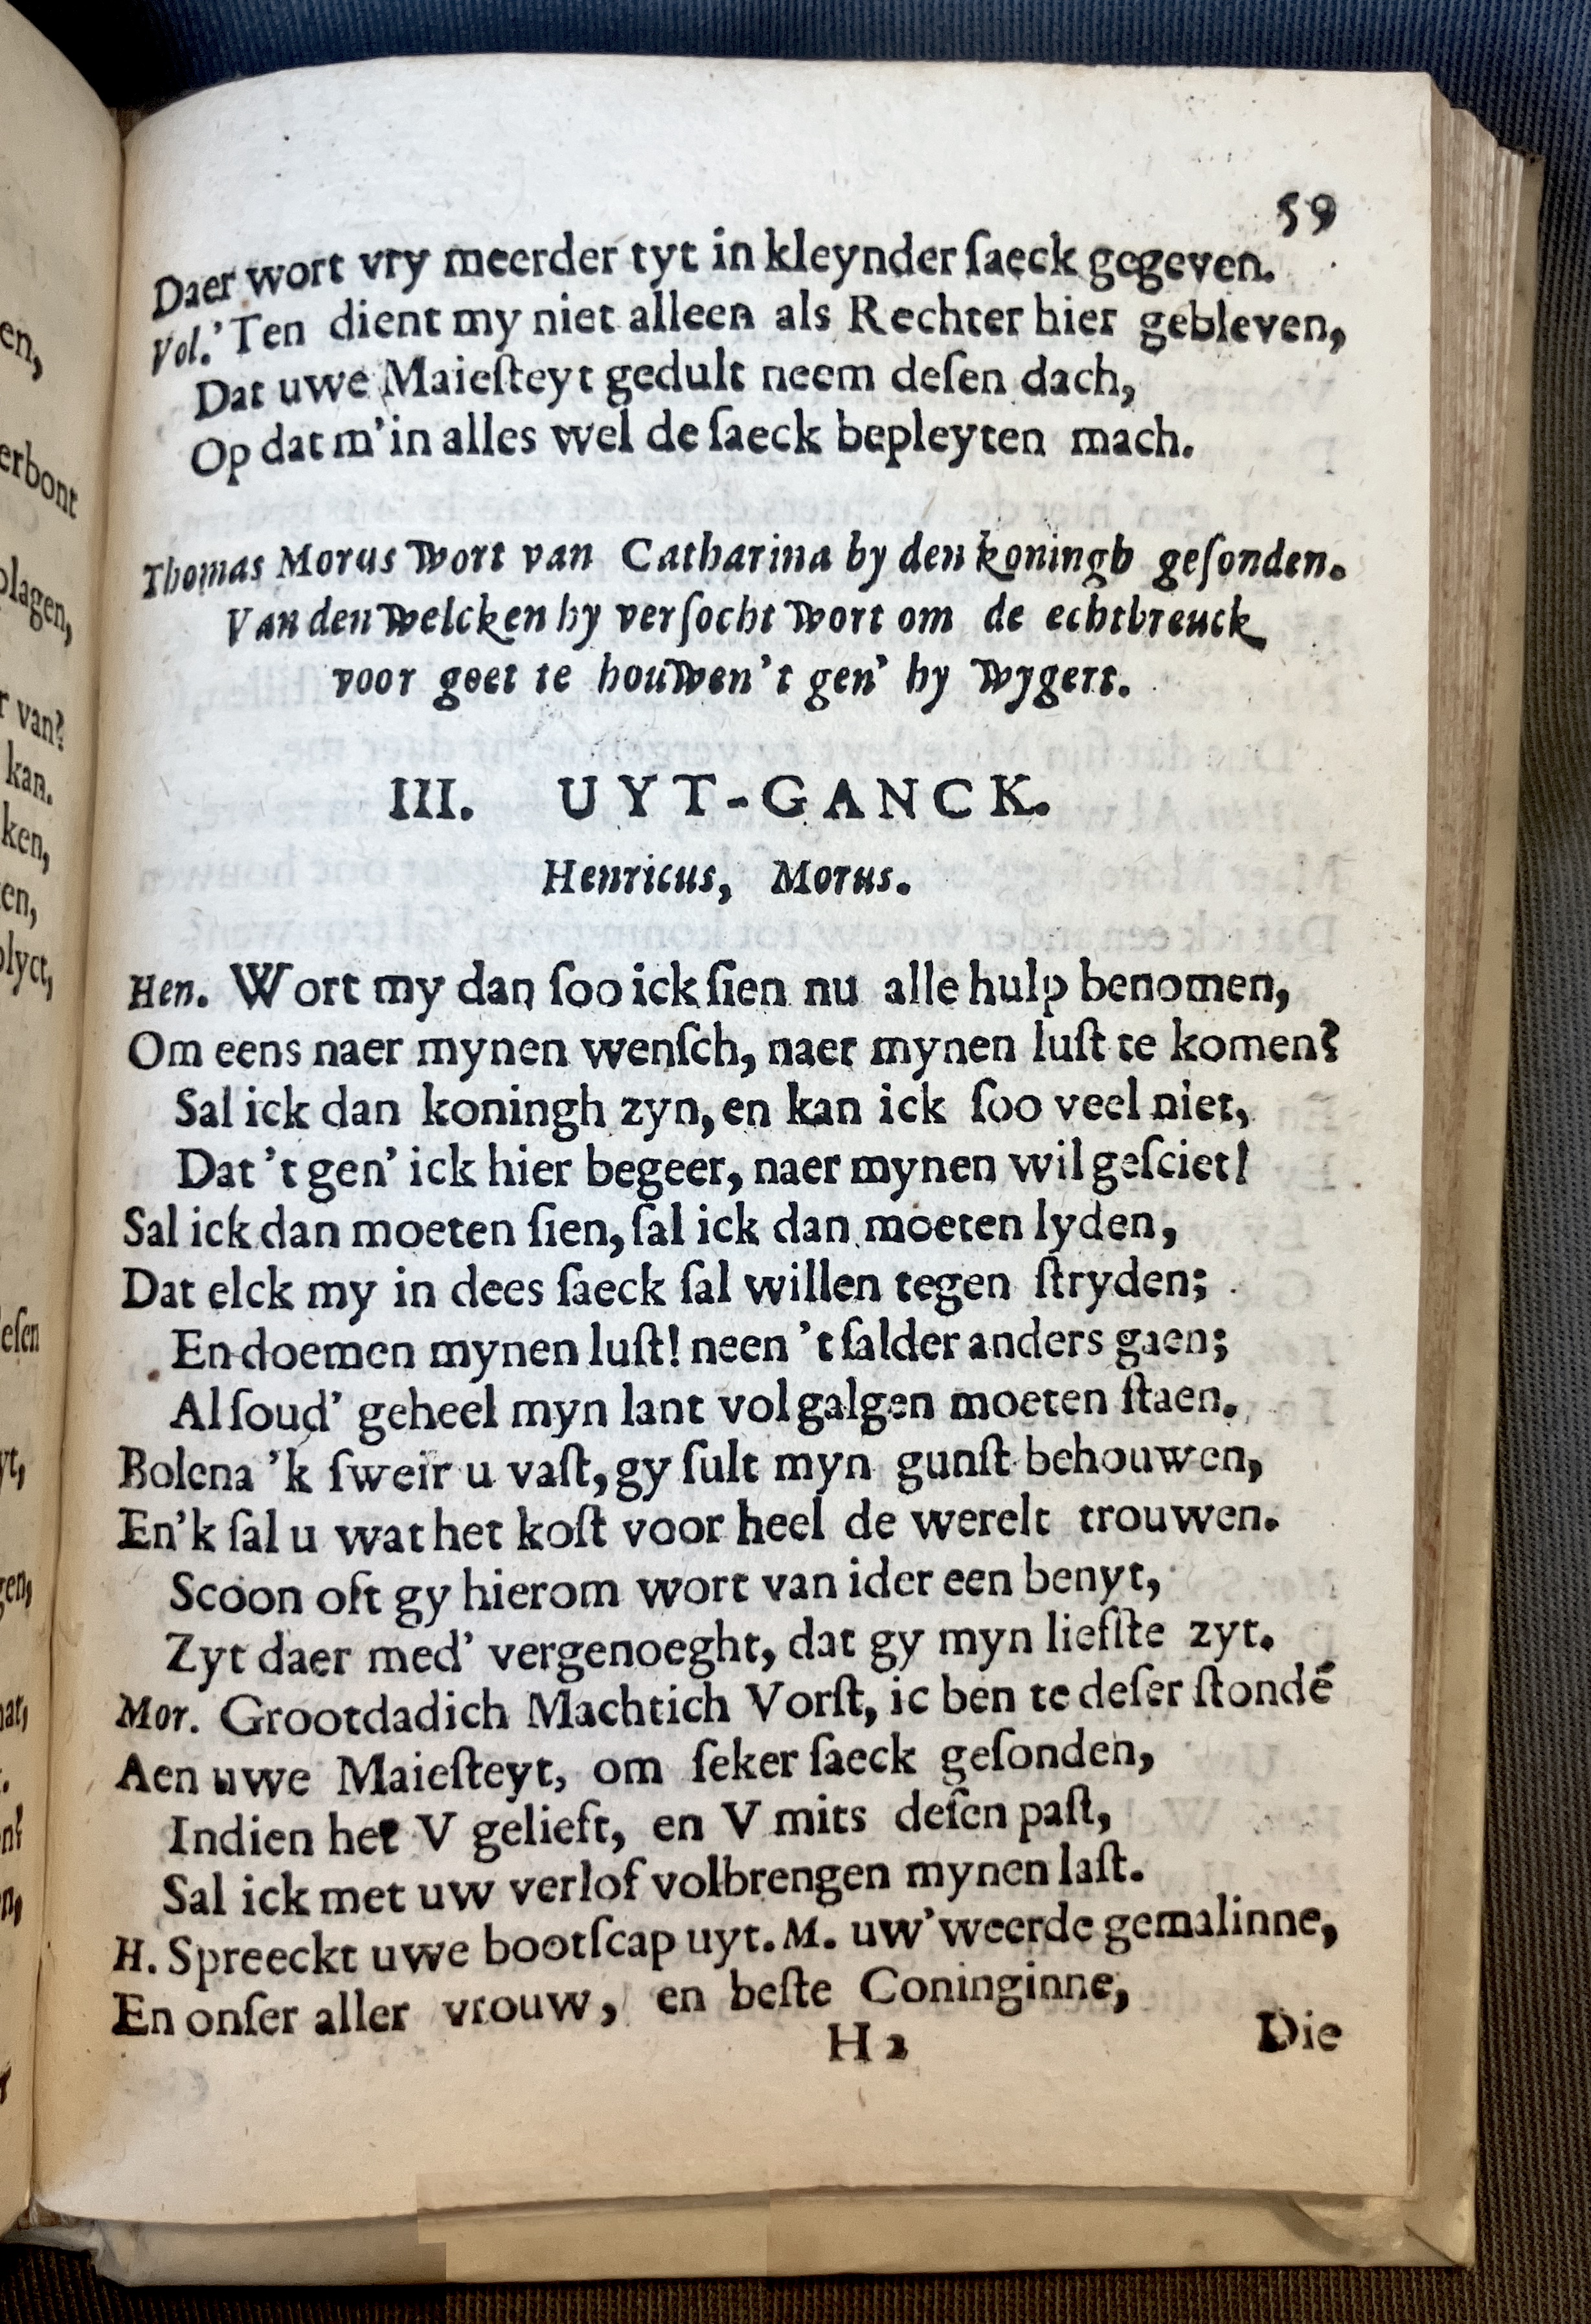 59
Daer wort vry meerder tyt in kleynder ſaeck gegeven.
Vol. 'Ten dient my niet alleen als Rechter hier gebleven,
Dat uwe Maieſteyt gedult neem deſen dach,
Op dat m' in alles wel de ſaeck bepleyten mach.
Thomas Morus Wort van Catharina by den koningh geſonden.
Van den Welcken hy verſocht Wort om de echtbreuck
voor goet te houWen 't gen' hy Wygert.
III. UYT-GANCK.
Henricus, Morus.
Hen. Wort my dan ſoo ick ſien nu alle hulp benomen,
Om eens naer mynen wenſch, naer mynen luſt te komen?
Sal ick dan koningh zyn, en kan ick ſoo veel niet,
Dat 't gen' ick hier begeer, naer mynen wil geſciet!
Sal ick dan moeten ſien, ſal ick dan moeten lyden,
Dat elck my in dees ſaeck ſal willen tegen ſtryden;
En doemen mynen luſt! neen 't ſalder anders gaen;
Al ſoud' geheel myn lant vol galgen moeten ſtaen.
Bolena 'k ſweir u vaſt, gy ſult myn gunſt behouwen,
En 'k ſal u wat het koſt voor heel de werelt trouwen.
Scoon oft gy hierom wort van ider een benyt,
Zyt daer med' vergenoeght, dat gy myn liefſte zyt.
Mor. Grootdadich Machtich Vorſt, ic ben te deſer ſtondē
Aen uwe Maieſteyt, om ſeker ſaeck geſonden,
Indien het V gelieft, en V mits deſen paſt,
Sal ick met uw verlof volbrengen mynen laſt.
H. Spreeckt uwe bootſcap uyt. M. uw' weerde gemalinne,
En onſer aller vrouw, en beſte Coninginne,
H 2 Die
en,
erbont
plagen,
r van?
kan.
ken,
en,
plyct,
eſen
yt,
gen,